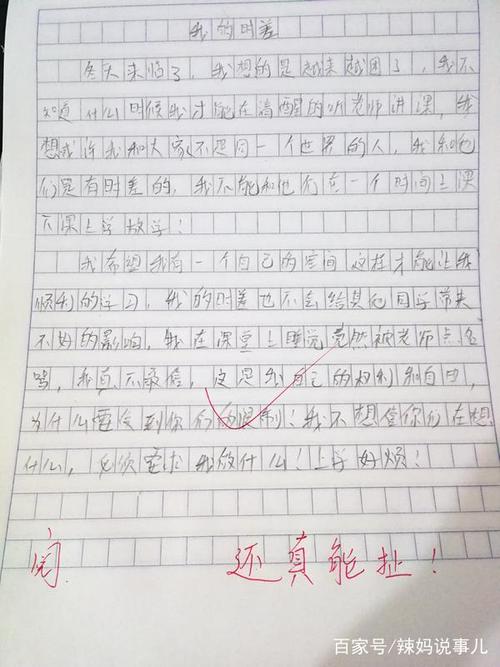 我的时差
冬天来临了,我想的是越来越困了,我不
知道什么时候我才能在清醒的听老师讲课,我
想或许我和大家不是同一个世界的人,我和他
们是有时差的,我不能和他们在一个时间上课
下课上学放学!
我希望我有一个自己的空间这样才能让我
顺利的学习,我的时差也不会给其他同学带来
不好的影响,我在课堂上睡觉竟然被老师点名
骂,我真不承信,这是我自己的权利和自由,
为什么要受到你们的限制!我不想管你们在想
什么,必须要求我做什么!上学好烦!
阅 还真能扯!
百家号/辣妈说事儿